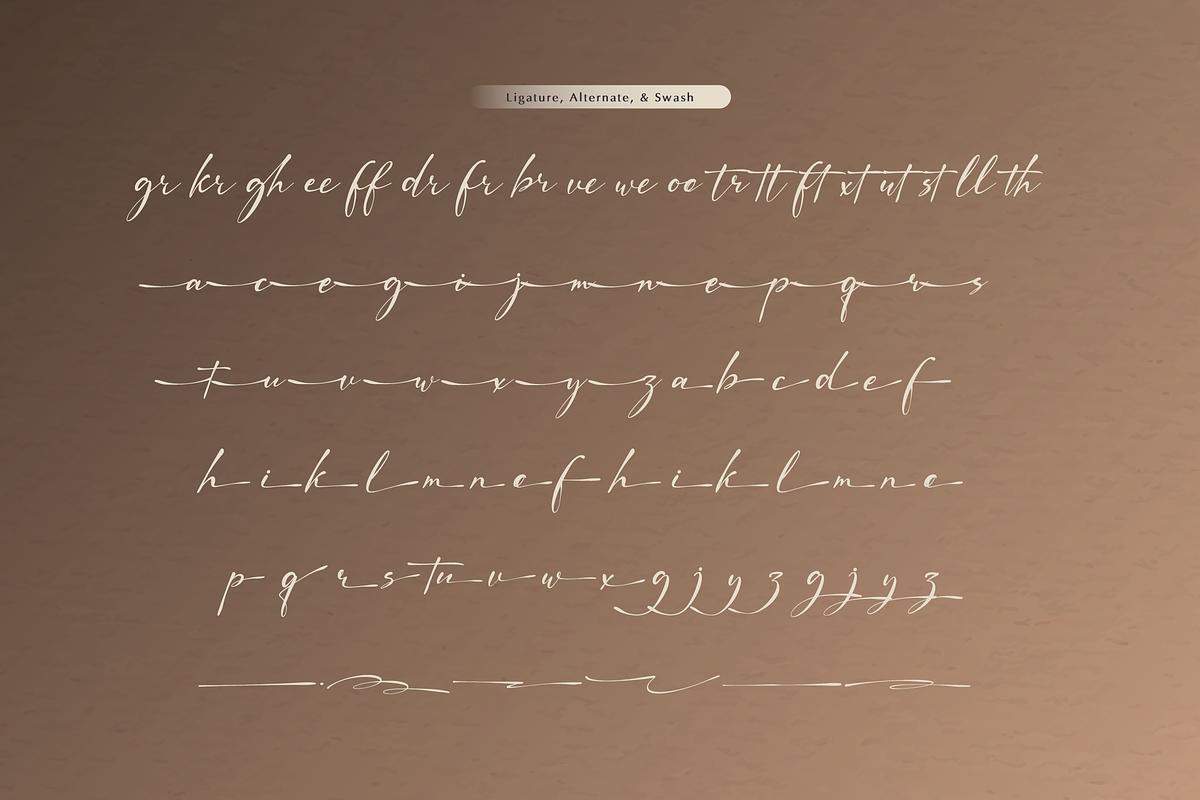 Ligature, Alternate, & Swash
gr kr gh ee ff dr fr br ve we oo tr tt ft xt ut st ll th
a c e g i j m n e p q r s
t u v w x y z a b c d e f
h i k l m n e f h i k l m n e
p q r s t u v w x g j y z g j y z